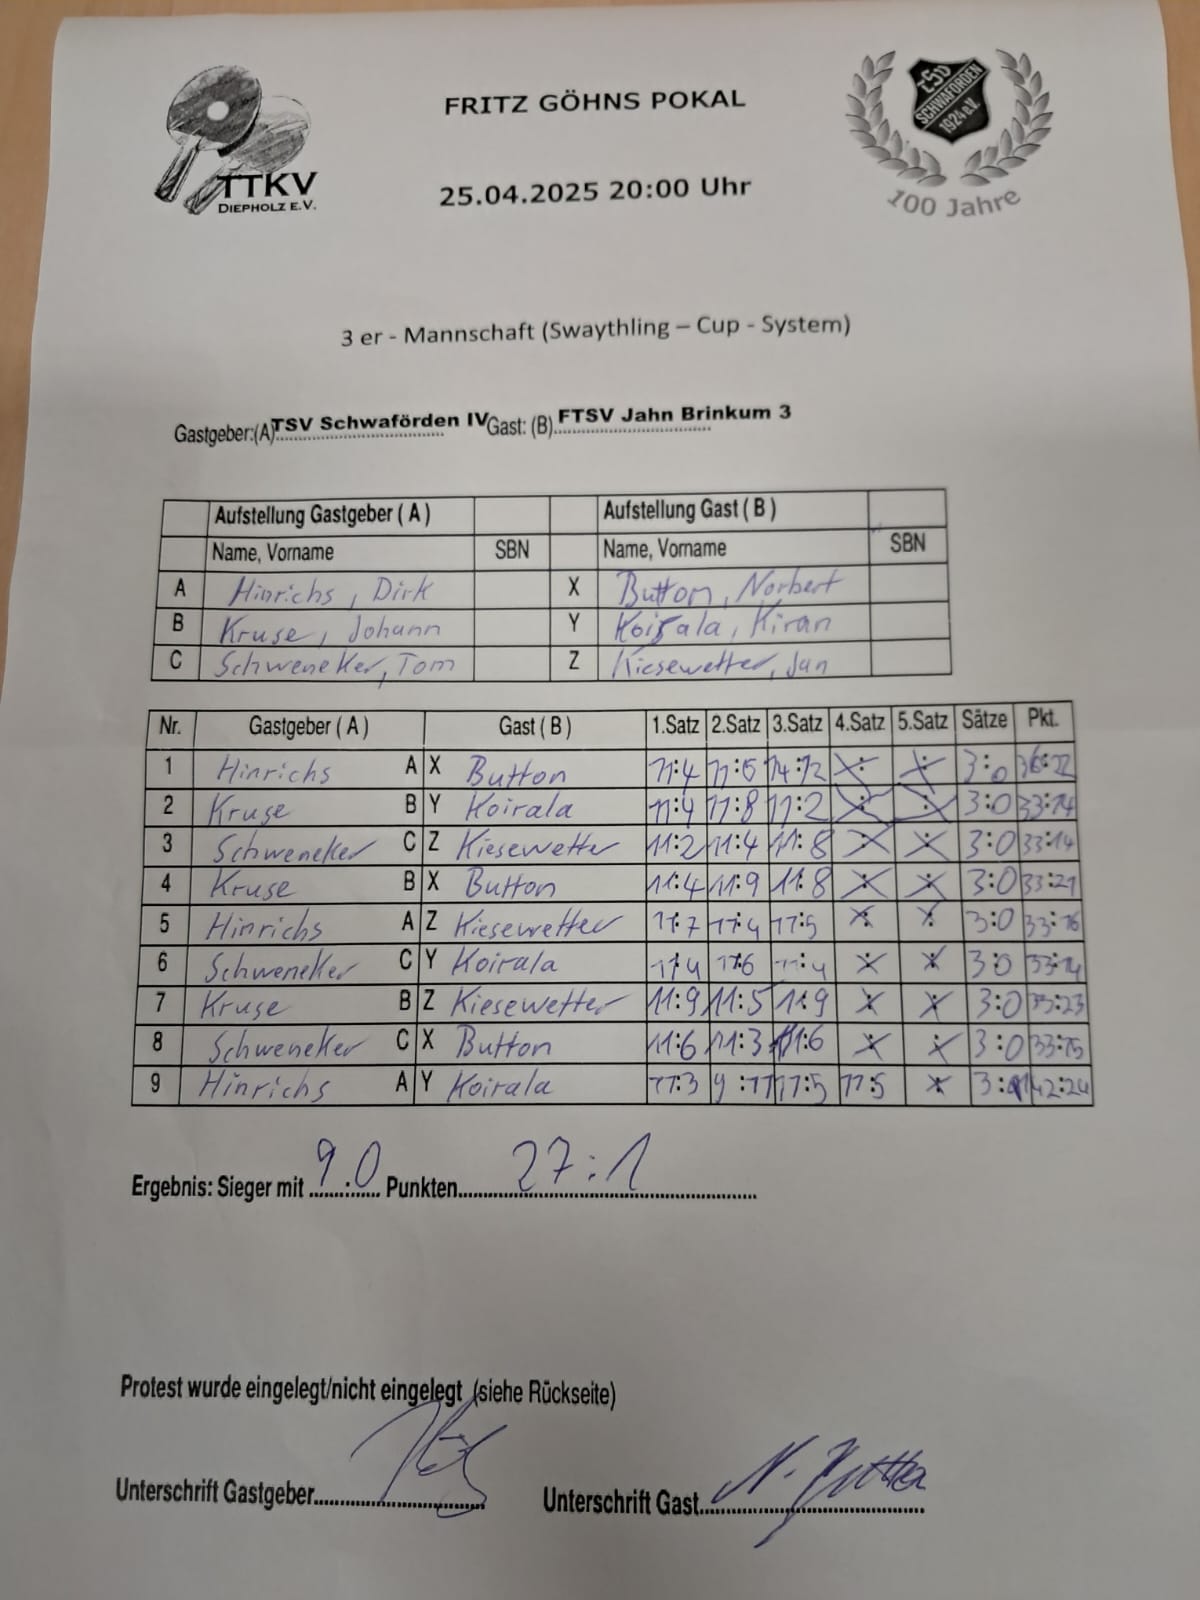 TTKV
DIEPHOLZ E.V.
FRITZ GÖHNS POKAL
25.04.2025 20:00 Uhr
TSV
SCHWAFÖRDEN
1924 e.V.
100 Jahre
3 er - Mannschaft (Swaythling – Cup - System)
Gastgeber:(A) TSV Schwaförden IV Gast: (B) FTSV Jahn Brinkum 3
Aufstellung Gastgeber ( A ) Aufstellung Gast ( B )
Name, Vorname SBN Name, Vorname SBN
A Hinrichs, Dirk X Button, Norbert
B Kruse, Johann Y Koirala, Kiran
C Schweneker, Tom Z Kiesewetter, Jan
Nr. Gastgeber ( A ) Gast ( B ) 1.Satz 2.Satz 3.Satz 4.Satz 5.Satz Sätze Pkt.
1 Hinrichs A X Button 11:4 11:6 14:12 : : 3:0 36:22
2 Kruse B Y Koirala 11:4 11:8 11:2 : : 3:0 33:14
3 Schweneker C Z Kiesewetter 11:2 11:4 11:8 : : 3:0 33:14
4 Kruse B X Button 11:4 11:9 11:8 : : 3:0 33:21
5 Hinrichs A Z Kiesewetter 11:7 11:4 11:5 : : 3:0 33:16
6 Schweneker C Y Koirala 11:4 11:6 11:4 : : 3:0 33:14
7 Kruse B Z Kiesewetter 11:9 11:5 11:9 : : 3:0 33:23
8 Schweneker C X Button 11:6 11:3 11:6 : : 3:0 33:15
9 Hinrichs A Y Koirala 11:3 9:11 11:5 11:5 : 3:1 42:24
Ergebnis: Sieger mit 9:0 Punkten 27:1
Protest wurde eingelegt/nicht eingelegt (siehe Rückseite)
Unterschrift Gastgeber Unterschrift Gast N. Button